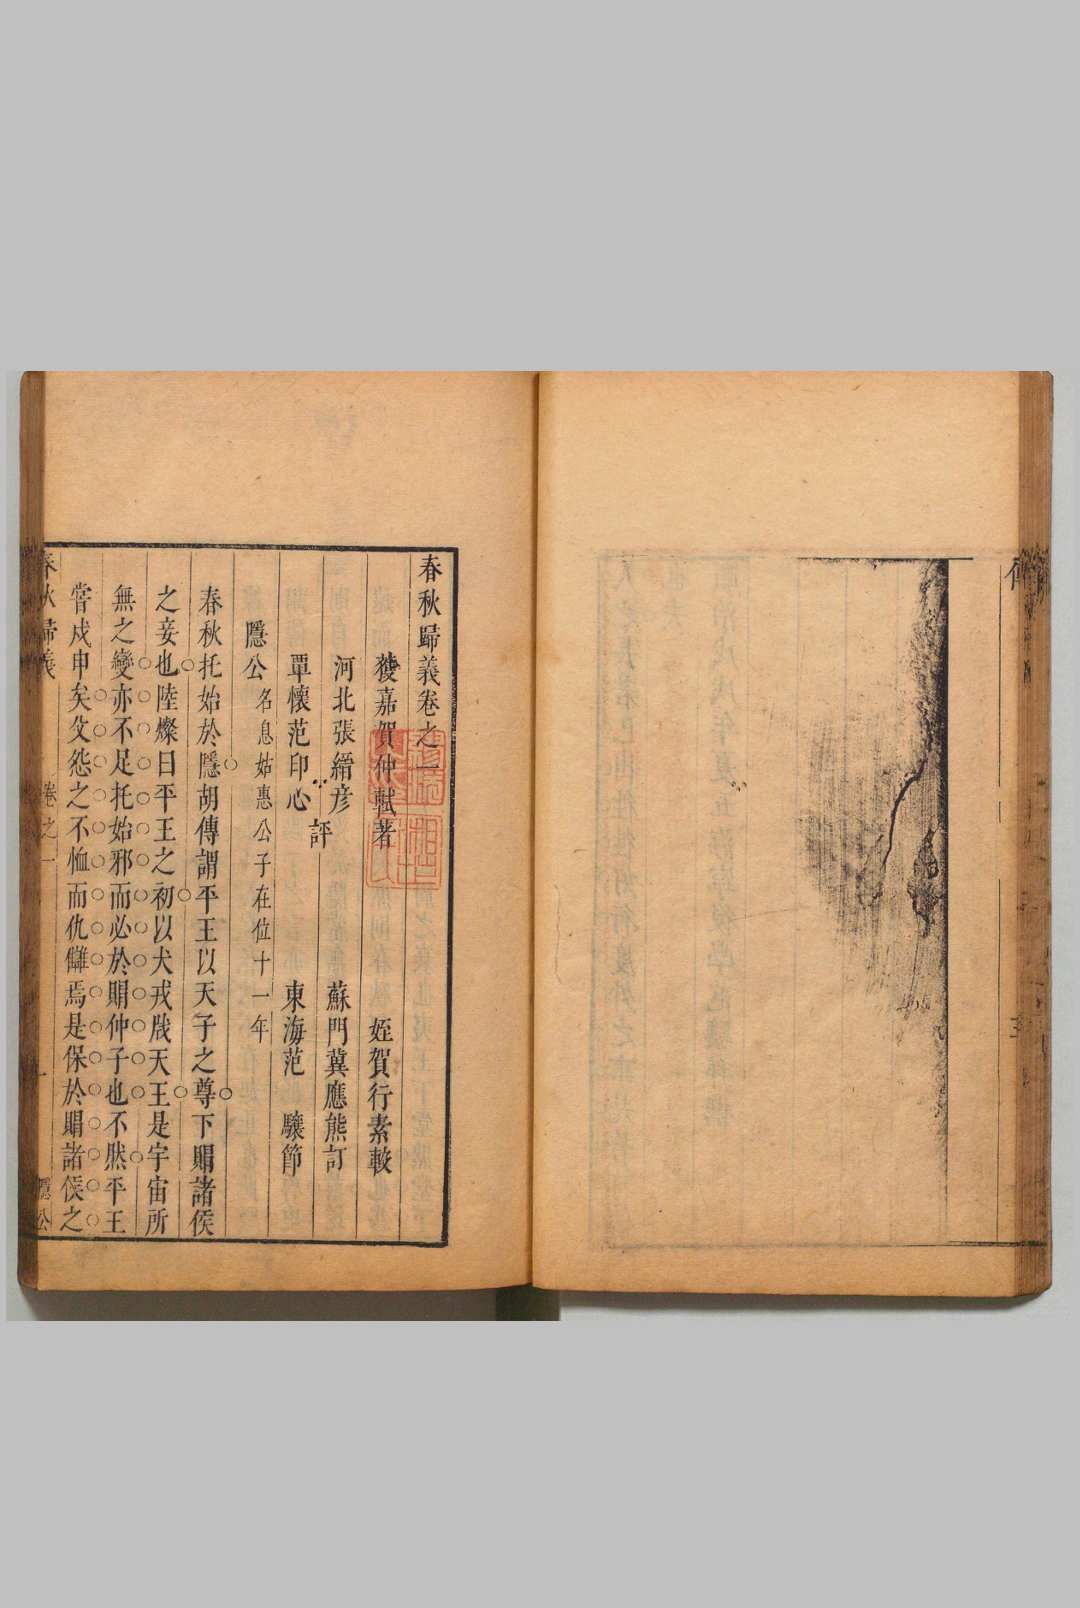 春秋歸義卷之一
獲嘉賀仲軾著　姪賀行素較
河北張縉彦　蘇門冀應熊訂
評
覃懷范印心　東海范　驤節
隱公名息姑惠公子在位十一年
春秋托始於隱胡傳謂平王以天子之尊下賵諸侯
之妾也陸燦曰平王之初以犬戎戕天王是宇宙所
無之變亦不足托始邪而必於賵仲子也不然平王
嘗戍申矣父怨之不恤而仇讎焉是保於賵諸侯之
春秋歸義　卷之一　隱公　一